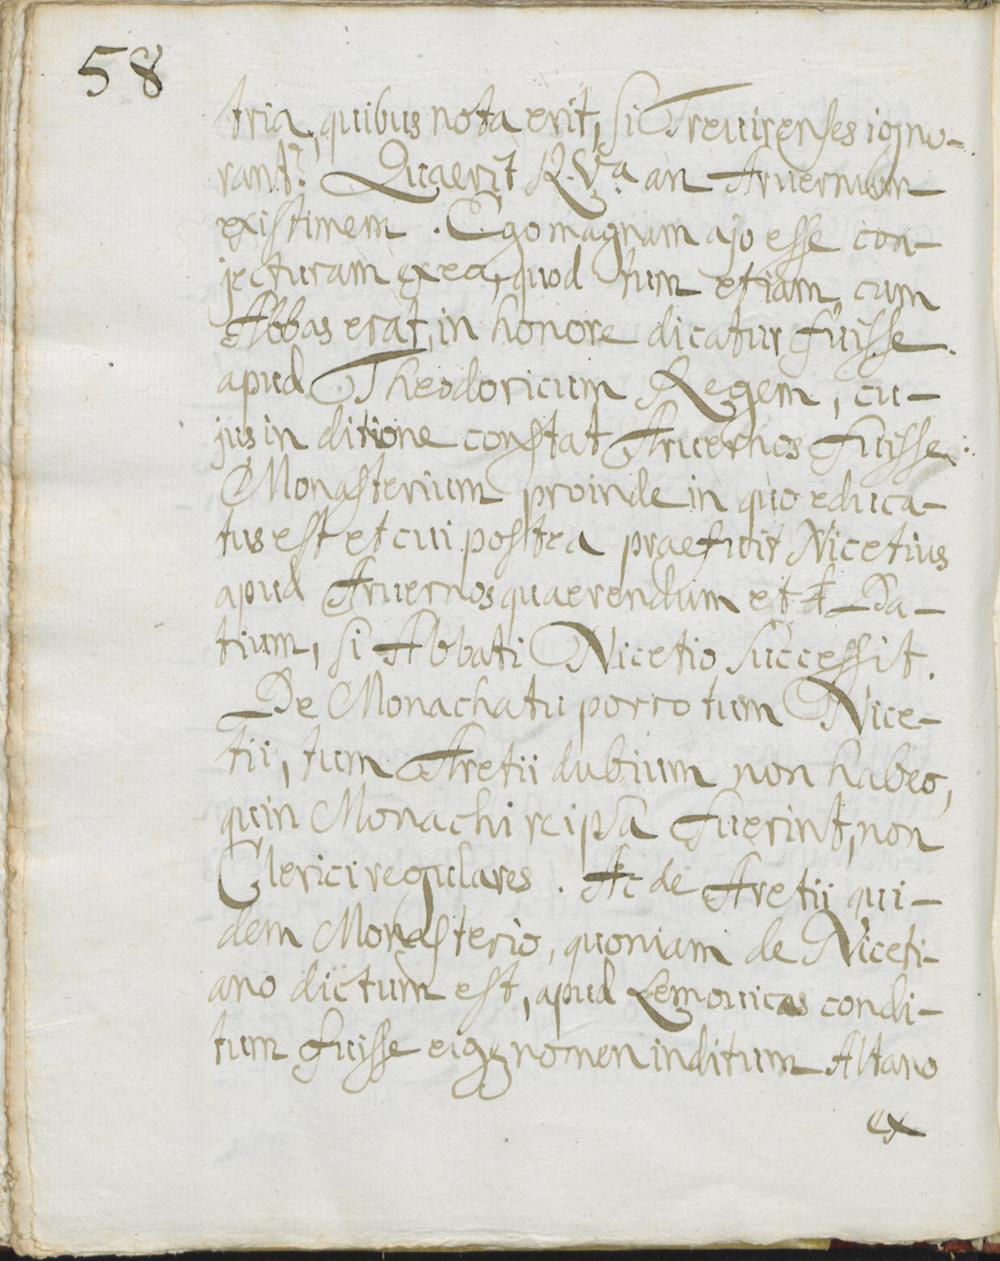 58
tria, quibus nota erit, si Treuirenses igno-
rant? Quaerit R. V.ª an Aruernum
existimem. Ego magnam ajo esse con-
jecturam ex eo, quod tum etiam, cum
Abbas erat, in honore dicatur fuisse
apud Theodoricum Regem, cu-
jus in ditione constat Aruernos fuisse.
Monasterium proinde in quo educa-
tus est et cui postea praefuit Nicetius
apud Aruernos quaerendum et
tium, si Abbati Nicetio successit.
De Monachatu porro tum Nice-
tii, tum Aretii dubium non habeo,
quin Monachi reipsa fuerint, non
Clerici regulares. Ac de Aretii qui-
dem Monasterio, quoniam de Niceti-
ano dictum est, apud Lemouicas condi-
tum fuisse eiq; nomen inditum Altano
ex